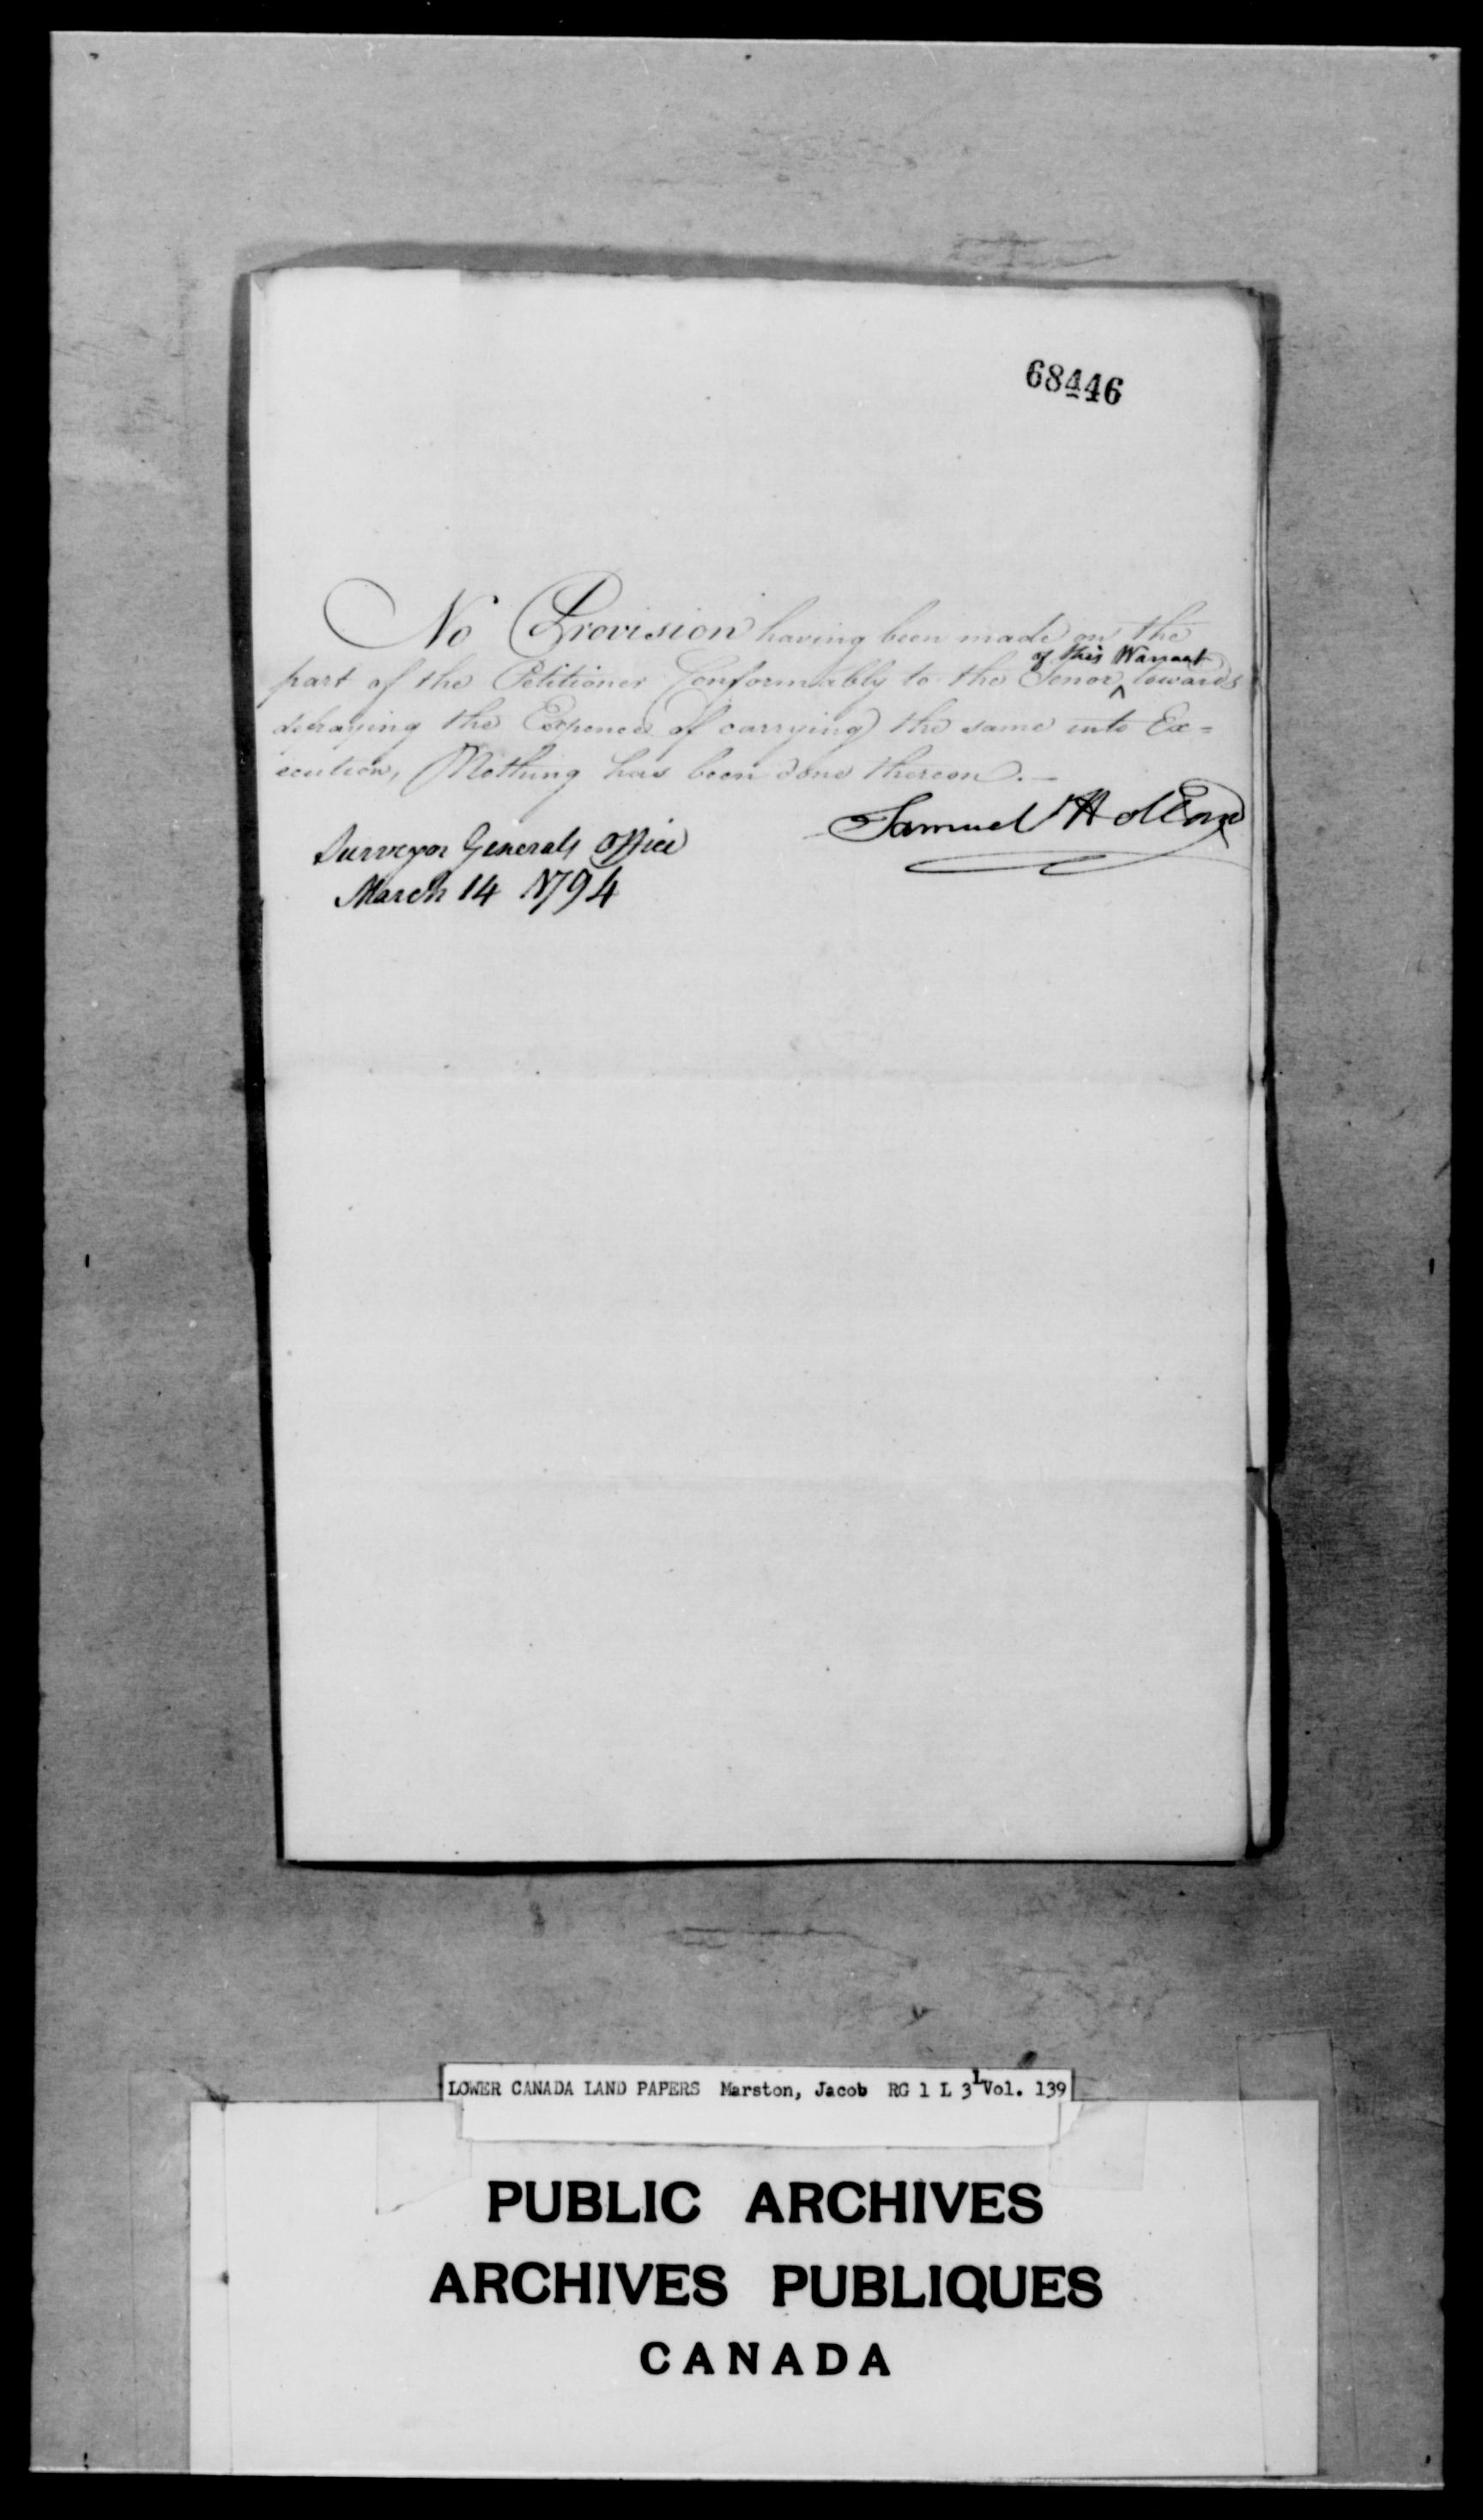 68446
No Provision having been made on the
of this Warrant
part of the Petitioner Conformably to the Tenor ^ towards
defraying the Expence of carrying the same into Ex=
ecution, Nothing has been done thereon.—
Samuel Holland
Surveyor Generals Office
March 14 1794
LOWER CANADA LAND PAPERS Marston, Jacob RG 1 L 3L Vol. 139
PUBLIC ARCHIVES
ARCHIVES PUBLIQUES
CANADA